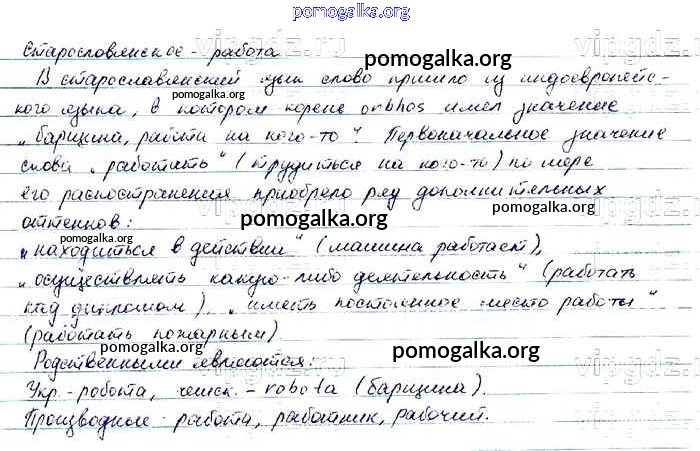 pomogalka.org
Старословянское - работа
vipgdz.ru
pomogalka.org
В старославянский язык слово пришло из индоевропейс-
pomogalka.org
кого языка, в котором корень orbhos имел значение
„барщина, работы на кого-то“. Первоначальное значение
слова „работать“ (трудиться на кого-то) по мере
pomogalka.org
его распостранения приобрело ряд дополнительных
vipgdz.ru
оттенков:
pomogalka.org
pomogalka.org
„находиться в действии“ (машина работает),
„осуществлять какую-либо деятельность“ (работать
над дипломом), „иметь постоянное место работы“
(работать пожарным)
pomogalka.org
Родственными являются:
vipgdz.ru
Укр. - робота, чешск. - robota (барщина).
Производные - работа, работник, рабочий.
pomogalka.org